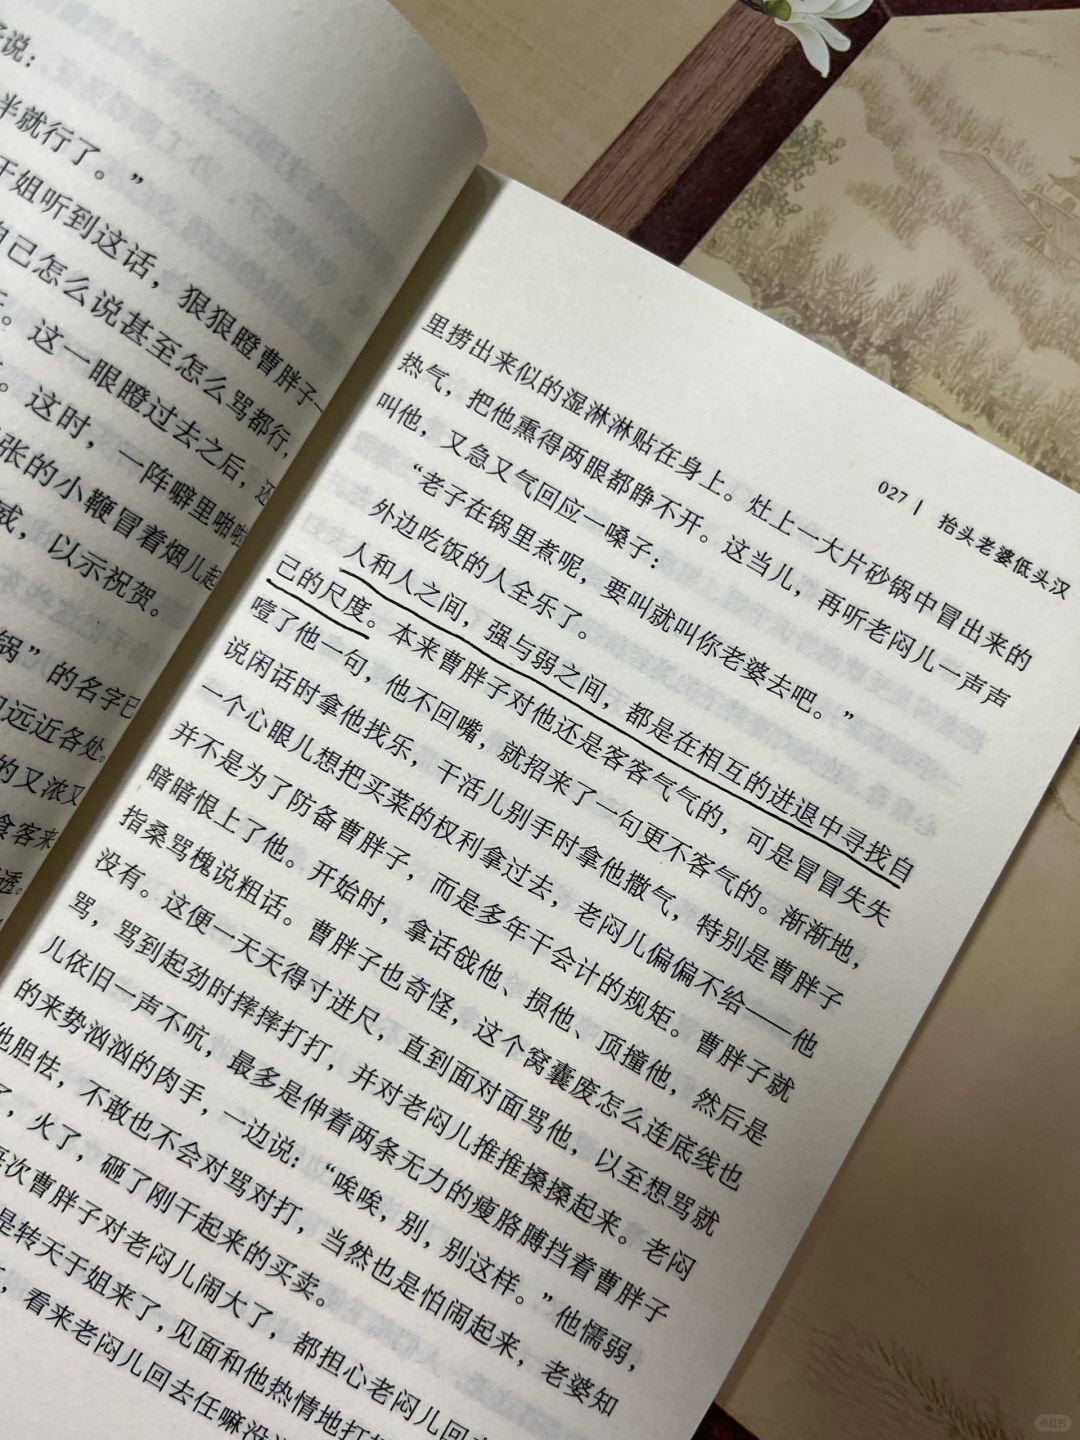 说：
半就行了。”
干姐听到这话，狠狠瞪曹胖子一
自己怎么说甚至怎么骂都行，
。这一眼瞪过去之后，还
。这时，一阵噼里啪啦
张的小鞭冒着烟儿起
威，以示祝贺。
锅”的名字已
远近各处。
的又浓又
食客来
透。
027 | 抬头老婆低头汉
里捞出来似的湿淋淋贴在身上。灶上一大片砂锅中冒出来的
热气，把他熏得两眼都睁不开。这当儿，再听老闷儿一声声
叫他，又急又气回应一嗓子：
“老子在锅里煮呢，要叫就叫你老婆去吧。”
外边吃饭的人全乐了。
人和人之间，强与弱之间，都是在相互的进退中寻找自
己的尺度。本来曹胖子对他还是客客气气的，可是冒冒失失
噎了他一句，他不回嘴，就招来了一句更不客气的。渐渐地，
说闲话时拿他找乐，干活儿别手时拿他撒气，特别是曹胖子
一个心眼儿想把买菜的权利拿过去，老闷儿偏偏不给——他
并不是为了防备曹胖子，而是多年干会计的规矩。曹胖子就
暗暗恨上了他。开始时，拿话戗他、损他、顶撞他，然后是
指桑骂槐说粗话。曹胖子也奇怪，这个窝囊废怎么连底线也
没有。这便一天天得寸进尺，直到面对面骂他，以至想骂就
骂，骂到起劲时摔摔打打，并对老闷儿推推搡搡起来。老闷
儿依旧一声不吭，最多是伸着两条无力的瘦胳膊挡着曹胖子
的来势汹汹的肉手，一边说：“唉唉，别，别这样。”他懦弱，
他胆怯，不敢也不会对骂对打，当然也是怕闹起来，老婆知
了，火了，砸了刚干起来的买卖。
次曹胖子对老闷儿闹大了，都担心老闷儿回去
是转天干姐来了，见面和他热情地打
，看来老闷儿回去任嘛没
小红书